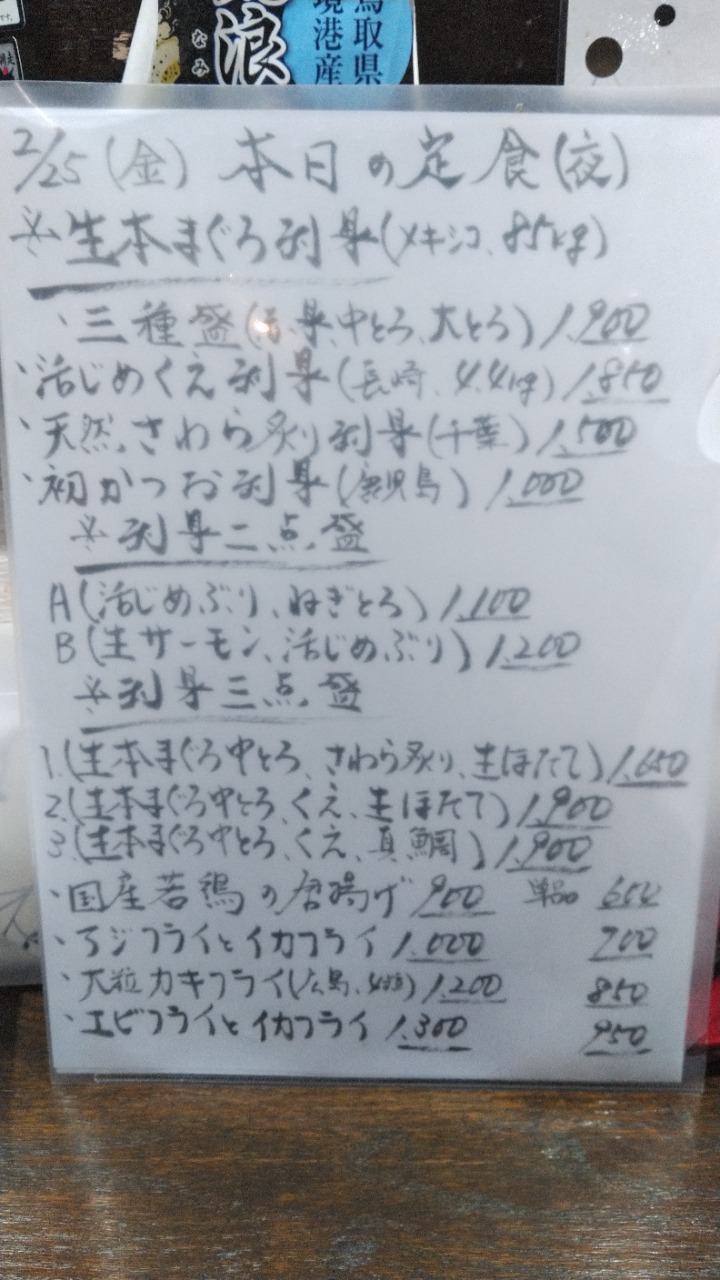 鳥取県
境港産
浪
なみ
2/25(金) 本日の定食(夜)
※生本まぐろ刺身(メキシコ、85kg)
・三種盛(赤身、中とろ、大とろ) 1,900
・活じめくえ刺身(長崎、4.4kg) 1,850
・天然さわら炙り刺身(千葉) 1,500
・初かつお刺身(鹿児島) 1,000
※刺身二点盛
A(活じめぶり、ねぎとろ) 1,100
B(生サーモン、活じめぶり) 1,200
※刺身三点盛
1.(生本まぐろ中とろ、さわら炙り、生ほたて) 1,650
2.(生本まぐろ中とろ、くえ、生ほたて) 1,900
3.(生本まぐろ中とろ、くえ、真鯛) 1,900
・国産若鶏の唐揚げ 900 単品 600
・アジフライとイカフライ 1,000 700
・大粒カキフライ(広島、4粒) 1,200 850
・エビフライとイカフライ 1,300 950